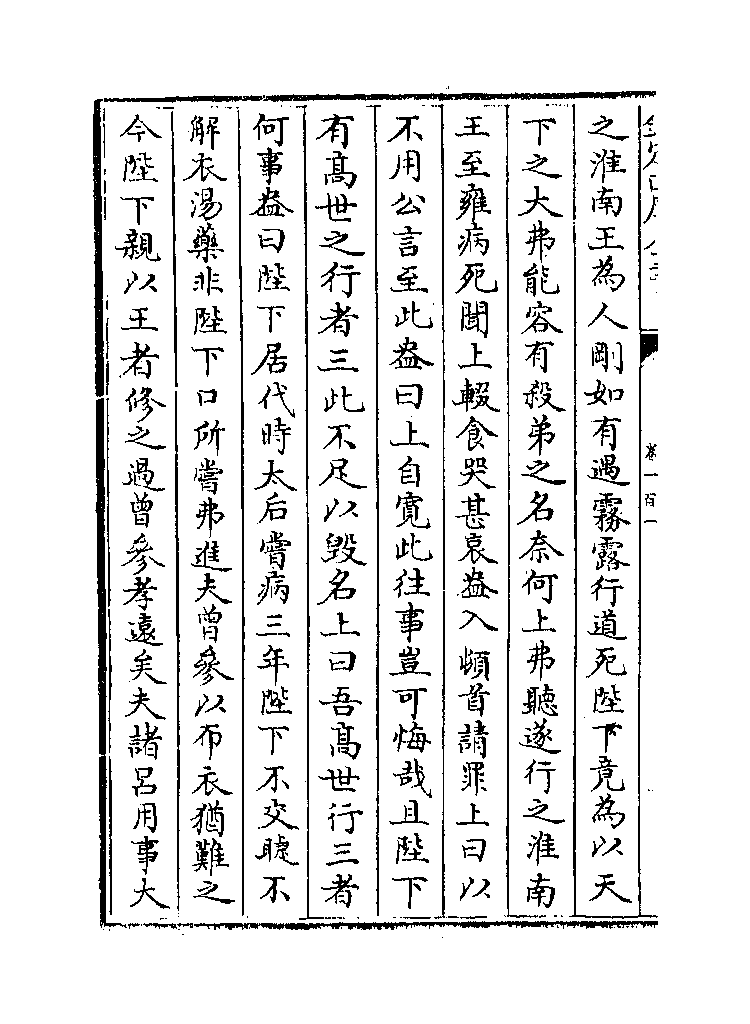 之淮南王為人剛如有遇霧露行道死陛下竟為以天
下之大弗能容有殺弟之名奈何上弗聽遂行之淮南
王至雍病死聞上輟食哭甚哀盎入頓首請罪上曰以
不用公言至此盎曰上自寛此往事豈可悔哉且陛下
有髙世之行者三此不足以毀名上曰吾髙世行三者
何事盎曰陛下居代時太后嘗病三年陛下不交睫不
解衣湯藥非陛下口所嘗弗進夫曾參以布衣猶難之
今陛下親以王者修之過曾參孝遠矣夫諸吕用事大
卷一百一